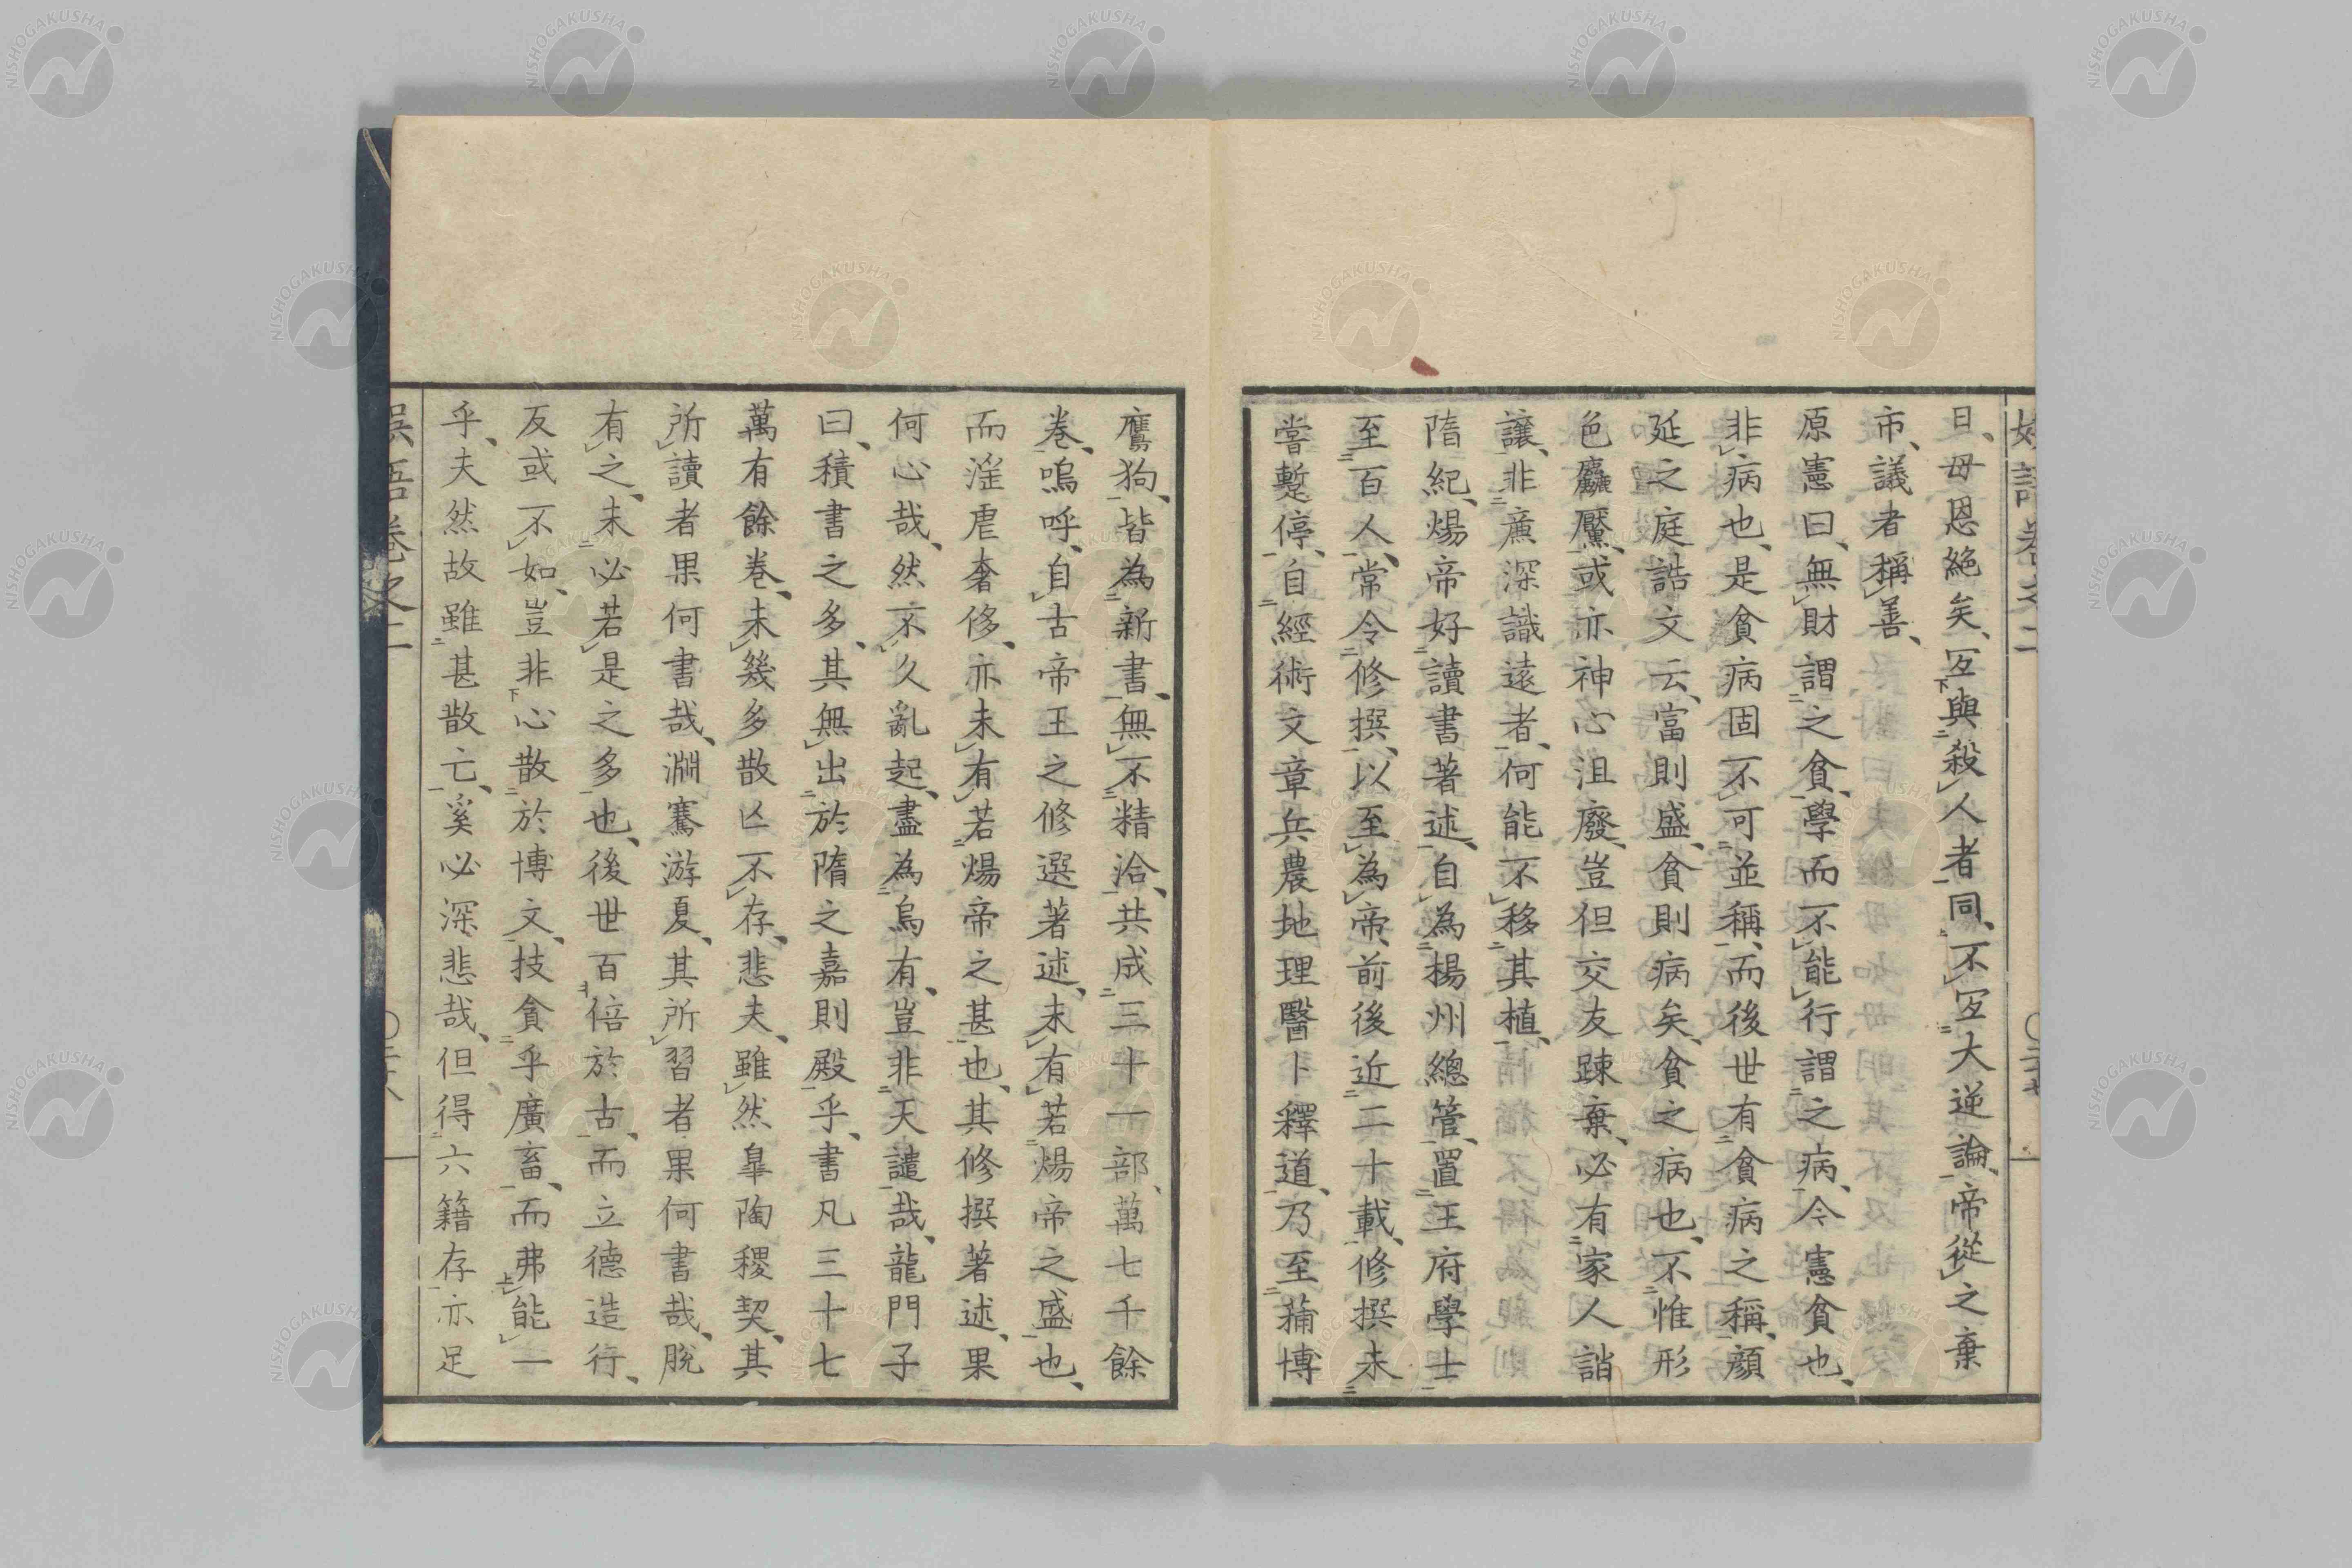 日、母恩絶矣、宐與殺人者同、不宐大逆論、帝從之棄
市、議者稱善、
原憲曰、無財謂之貧、學而不能行謂之病、今憲貧也、
非病也、是貧病固不可並稱、而後世有貧病之稱、顔
延之庭誥文云、富則盛、貧則病矣、貧之病也、不惟形
色麤黶、或亦神心沮廢、豈但交友踈棄、必有家人誚
讓、非㢘深識遠者、何能不移其植、
隋紀、煬帝好讀書著述、自為楊州總管、置王府學士
至百人、常令修撰、以至為帝、前後近二十載、修撰未
嘗蹔停、自經術文章兵農地理醫卜釋道、乃至蒱博
鷹狗、皆為新書、無不精洽、共成三十一部、萬七千餘
卷、嗚呼、自古帝王之修選著述、未有若煬帝之盛也、
而滛虐奢侈、亦未有若煬帝之甚也、其修撰著述、果
何心哉、然不久亂起、盡為烏有、豈非天譴哉、龍門子
曰、積書之多、其無出於隋之嘉則殿乎、書凡三十七
萬有餘卷、未幾多散亾不存、悲夫、雖然皐陶稷契、其
所讀者果何書哉、淵騫游夏、其所習者果何書哉、脫
有之、未必若是之多也、後世百倍於古、而立德造行、
反或不如、豈非心散於博文、技貪乎廣畜、而弗能一
乎、夫然故雖甚散亡、奚必深悲哉、但得六籍存亦足